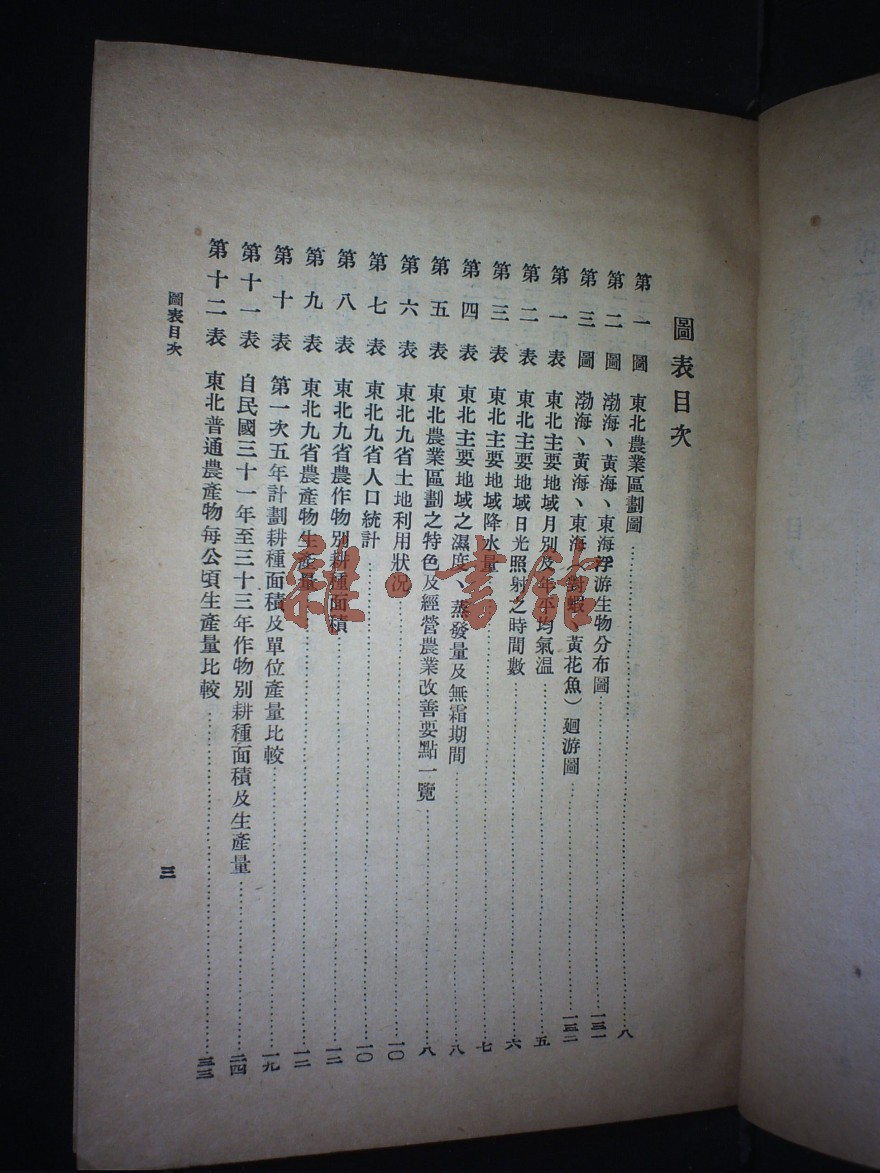 圖表目次
第一圖 東北農業區劃圖……八
第二圖 渤海、黃海、東海浮游生物分布圖……一三一
第三圖 渤海、黃海、東海（對蝦、黃花魚）廻游圖……一三二
第一表 東北主要地域月別及年平均氣溫……五
第二表 東北主要地域日光照射之時間數……六
第三表 東北主要地域降水量……七
第四表 東北主要地域之濕度、蒸發量及無霜期間……八
第五表 東北農業區劃之特色及經營農業改善要點一覽……八
第六表 東北九省土地利用狀況……一〇
第七表 東北九省人口統計……一〇
第八表 東北九省農作物別耕種面積……一二
第九表 東北九省農產物生產量……一二
第十表 第一次五年計劃耕種面積及單位產量比較……一九
第十一表 自民國三十一年至三十三年作物別耕種面積及生產量……二四
第十二表 東北普通農產物每公頃生產量比較……三三
圖表目次
三
雜·書館